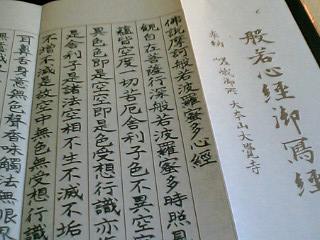 般若心經御寫經
奉納 嵯峨御所 大本山大覺寺
佛說摩訶般若波羅蜜多心經
觀自在菩薩行深般若波羅蜜多時照見
蘊皆空度一切苦厄舍利子色不異空空
異色色即是空空即是色受想行識亦
是舍利子是諸法空相不生不滅不垢
不增不減是故空中無色無受想行識
耳鼻舌身意無色聲香味觸法無眼界